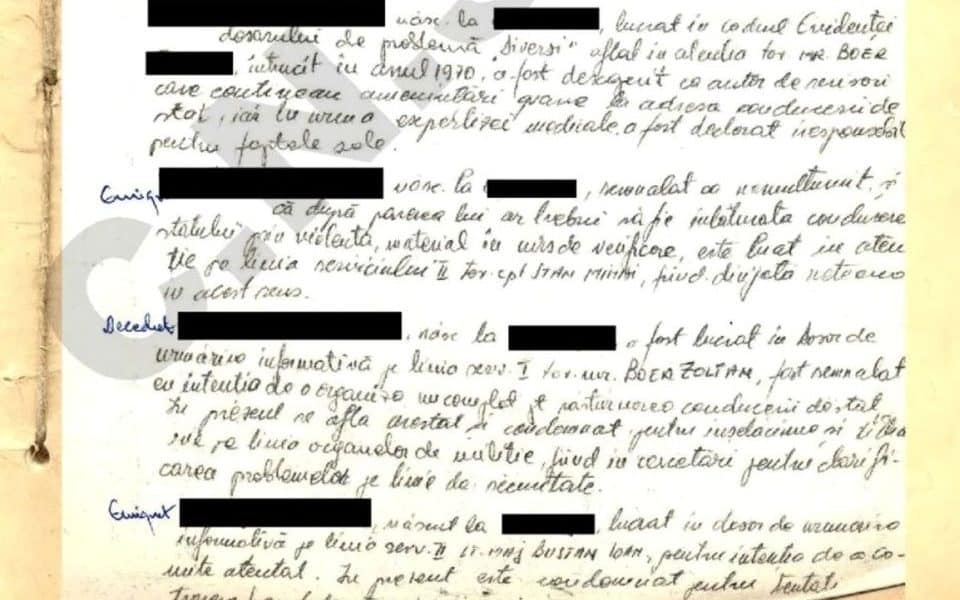 născ. la , lucrat în cadrul Evidenței
dosarului de problemă "Diverși" aflat în atenția tov mr. BOER
, întrucît în anul 1970, a fost descoperit ca autor de scrisori
care conțineau amenințări grave la adresa conducerii de
stat, iar în urma expertizei medicale a fost declarat iresponsabil
pentru faptele sale.
Emigrat născ. la , semnalat ca nemulțumit, și
că după părerea lui ar trebui să fie înlăturată conducerea
statului prin violență, material în curs de verificare, este luat în aten
ție pe linia serviciului II tov. cpt STAN MIHAI, fiind dirijată rețeaua
în acest sens.
Decedat , născ la , a fost lucrat în dosar de
urmărire informativă pe linia serv. I tov. mr. BOER ZOLTAN, fost semnalat
cu intenția de a organiza un complot pt. răsturnarea conducerii de stat
În prezent se află arestat și condamnat, pentru înșelăciune și
pe linia organelor de miliție, fiind în cercetări pentru clarifi-
carea problemelor pe linie de securitate.
Emigrat , născut la , lucrat în dosar de urmărire
informativă pe linia serv. II lt. maj BUSTAN IOAN, pentru intenția de a co-
mite atentat. În prezent este condamnat pentru tentati
C.N.